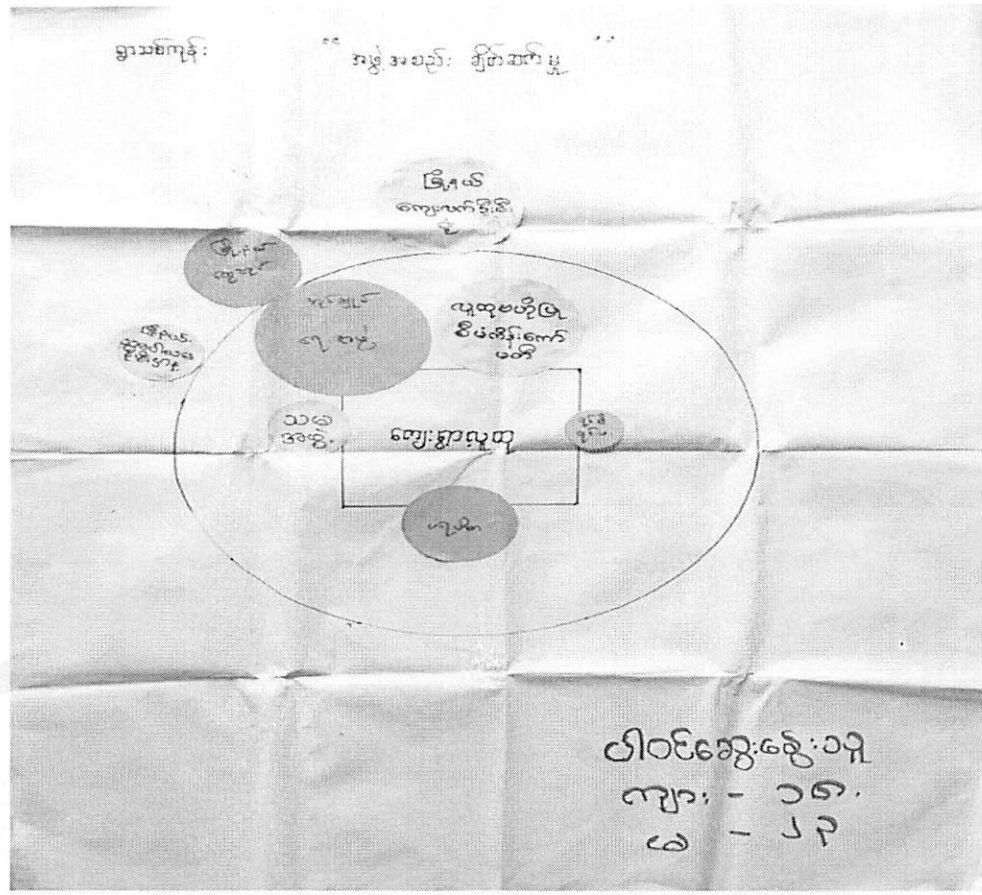 ရွာသစ်ကုန်း
"အဖွဲ့အစည်း ချိတ်ဆက်မှု"
မြို့နယ်
ကျေးလက်ဦးစီး
မြို့နယ်
အုပ်ချုပ်
ရေး အဖွဲ့
လူထုဗဟိုပြု
စီမံကိန်းကော်
မတီ
သမ
အဖွဲ့
ကျေးရွာလူထု
ပရဟိတ
ပါဝင်ဆွေးနွေးသူ
ကျား - ၁၈
မ - ၂၃